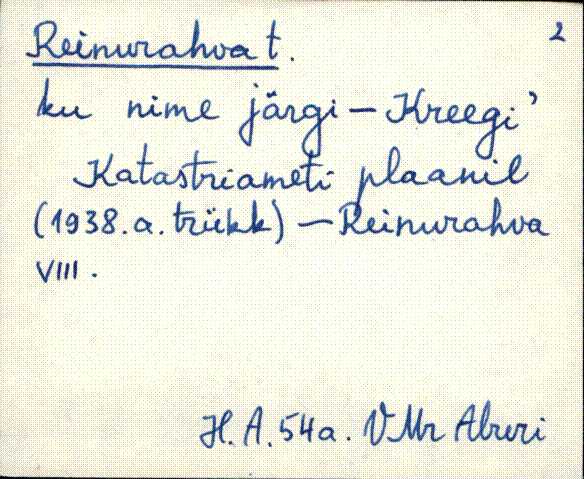 Reinurahva t. 2
ku nime järgi – Kreegi'
Katastriameti plaanil
(1938.a. trükk) – Reinurahva
VIII.
H. A. 54a. VMr Alveri